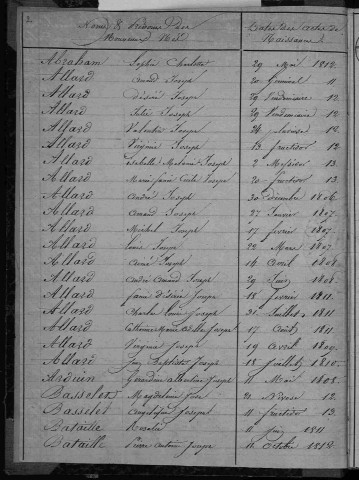 Noms & Prénoms Des Nouveaux Nés Dates des actes de Naissance
Abraham Sophie Charlotte 29 Mai 1812
Allard Amand Joseph 20 Germinal 11
Allard Désiré Joseph 29 Vendemiaire 12
Allard Félix Joseph 29 Vendemiaire 12
Allard Valentin Joseph 12
Allard Virginie Joseph 13 fructidor 12
Allard Isabelle Melanie Joseph 2 Messidor 13
Allard Marie Joseph 20 fructidor 13
Allard André Joseph 30 décembre 1806
Allard Amand Joseph 27 Janvier 1807
Allard Michel Joseph 17 fevrier 1807
Allard Louis Joseph 22 Mars 1807
Allard Aimé Joseph 16 Avril 1808
Allard André Amand Joseph 29 Juin 1808
Allard Désirée Joseph 18 fevrier 1811
Allard Charles Louis Joseph 31 Juillet 1811
Allard Catherine Joseph 17 Août 1811
Allard Virginie Joseph 19 Avril 1809
Allard Jean Baptiste Joseph 18 Juillet 1810
Ardien Joseph 11 Mai 1808
Basselet Magdeleine 21 Nivose 12
Basselet Angélique Joseph 11 fructidor 13
Bataille Rosalie 11 Juin 1811
Bataille Pierre Antoine Joseph 12 Octobre 1812